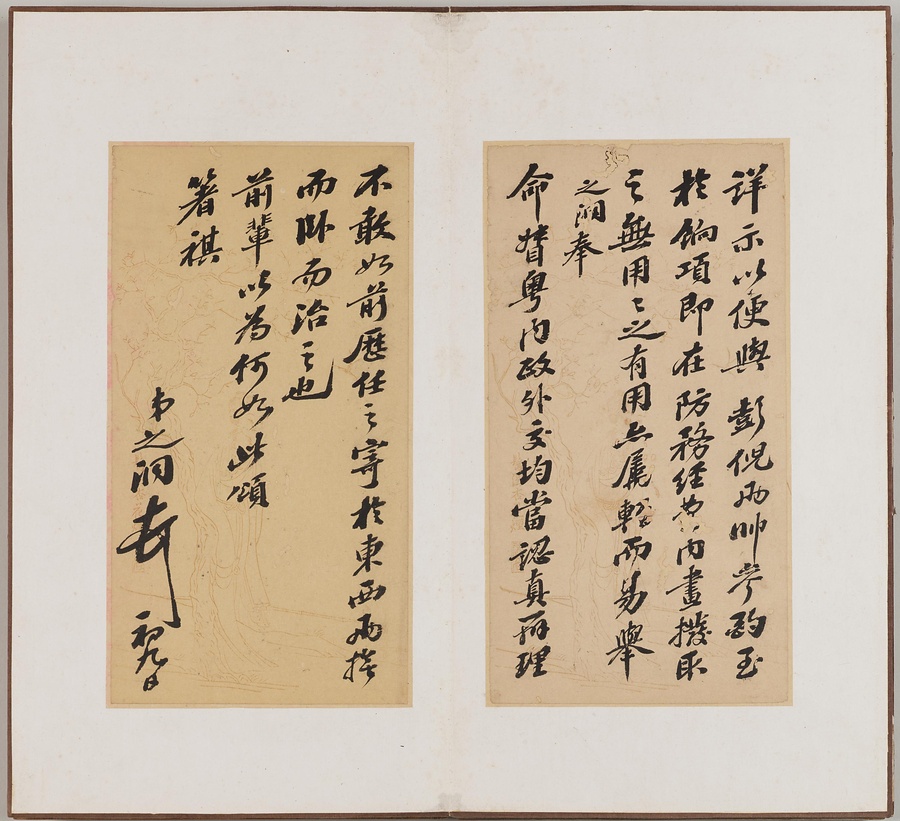 詳示以便與 彭倪兩帥參酌至
於餉項即在防務經費內畫撥取
之無用々之有用亦屬輕而易舉
之洞奉
命督粵內政外交均當認真辦理
不敢如前歷任之寄於東西兩揆
而卧而治之也
前輩以為何如此頌
箸祺
弟之洞 初九日